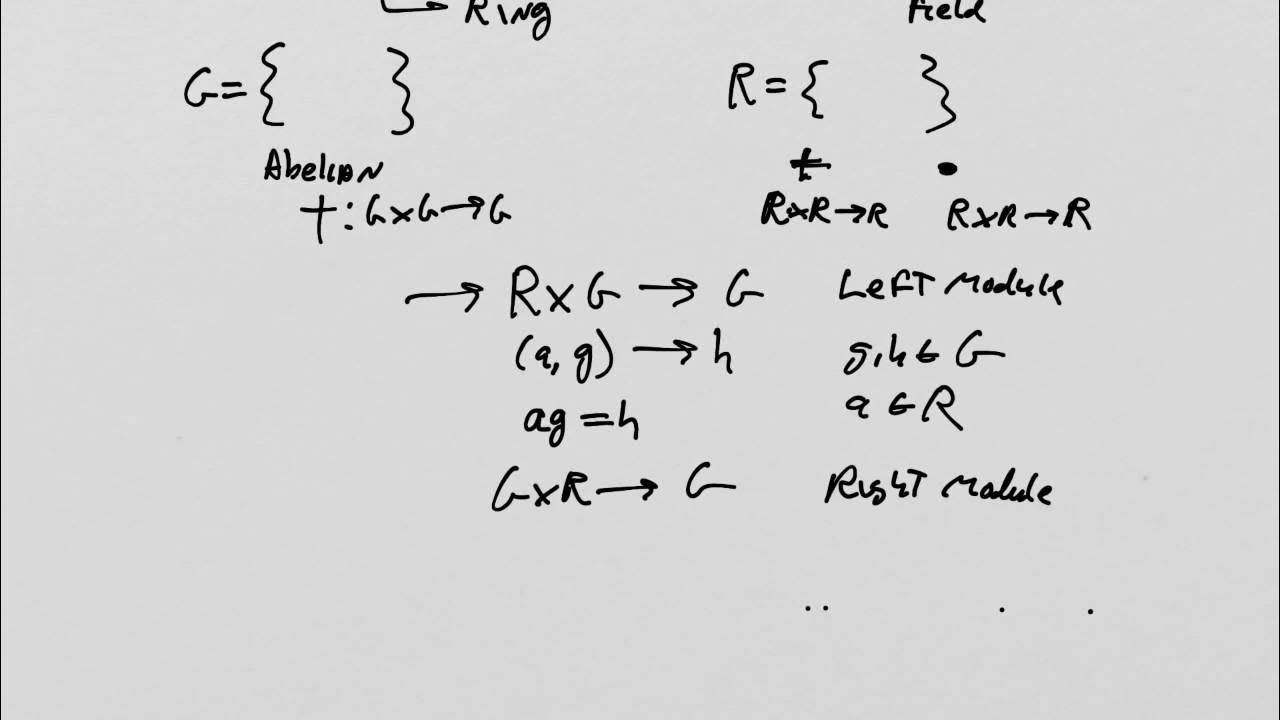 Ring Field
G = { } R = { }
Abelian + •
+ : G×G → G R×R → R R×R → R
→ R × G → G Left Module
(a, g) → h g, h ∈ G
ag = h a ∈ R
G×R → G Right Module